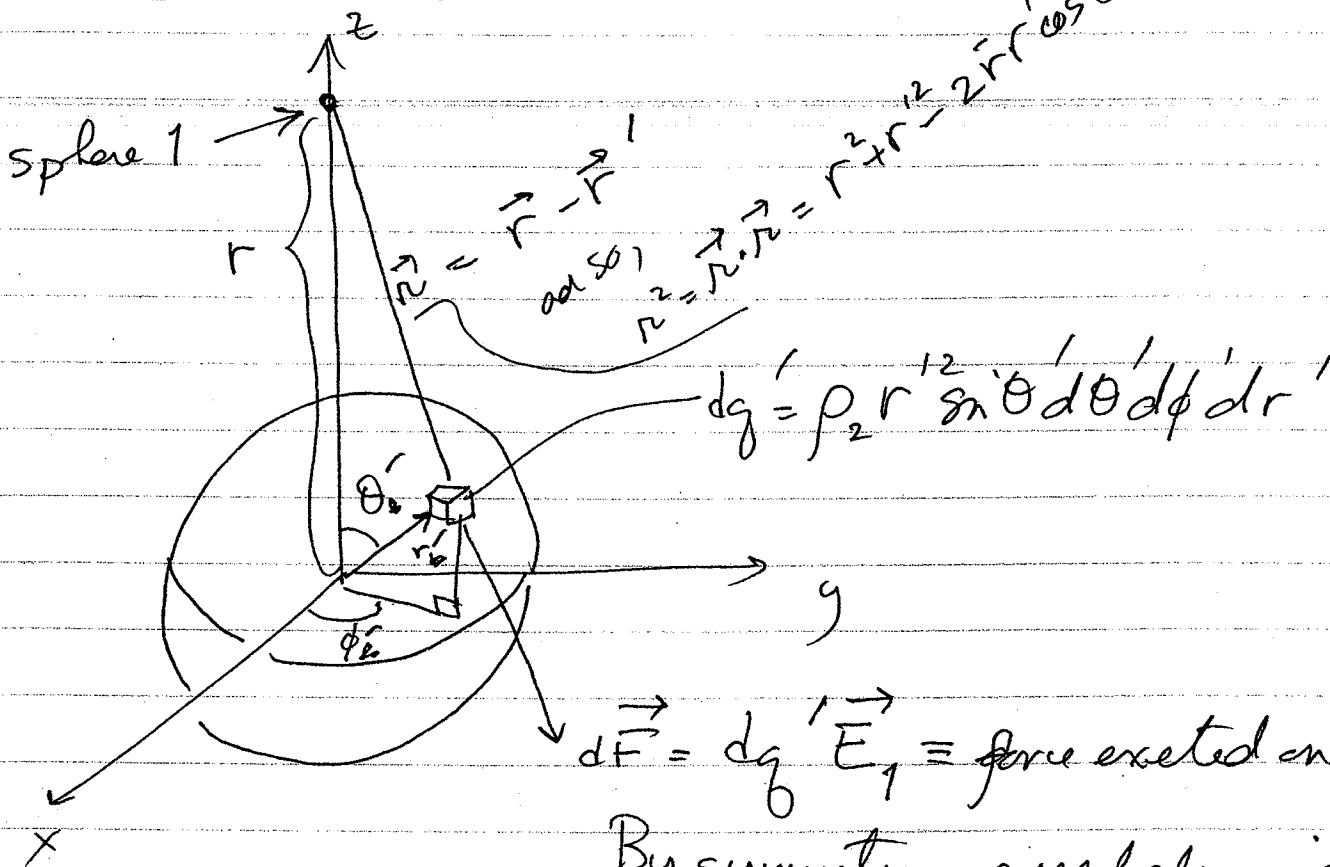 z
sphere 1
r
𝓇⃗ = r⃗ - r⃗ '
also,
𝓇² = 𝓇⃗ · 𝓇⃗ = r² + r'² - 2 r r' cos
dq' = ρ₂ r'² sin θ' dθ' dφ' dr'
θ'
r'
y
φ'
dF⃗ = dq' E⃗₁ ≡ force exerted on
x
By symmetry